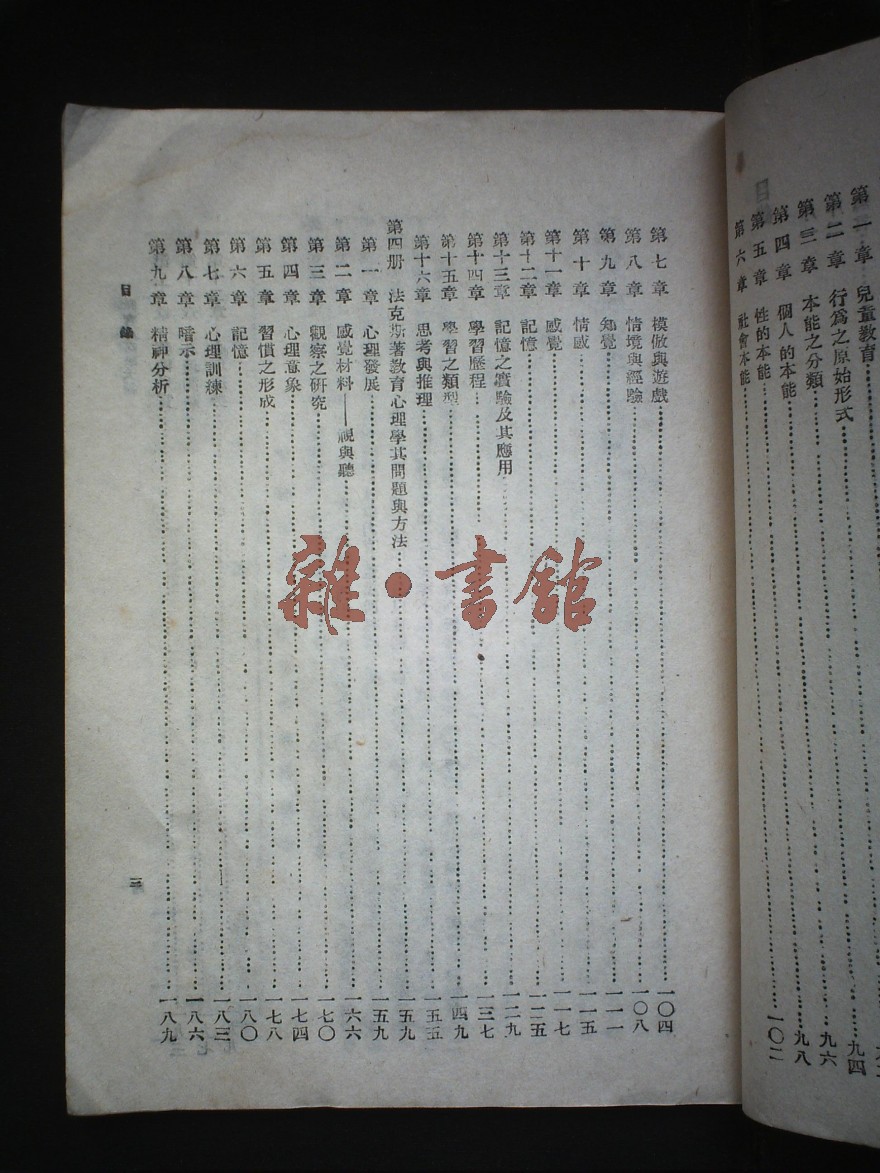 第一章 兒童教育
第二章 行爲之原始形式 九四
第三章 本能之分類 九六
第四章 個人的本能 九八
第五章 性的本能
第六章 社會本能 一〇二
第七章 模倣與遊戲 一〇四
第八章 情境與經驗 一〇八
第九章 知覺 一一一
第十章 情感 一一五
第十一章 感覺 一一七
第十二章 記憶 一二五
第十三章 記憶之實驗及其應用 一二九
第十四章 學習歷程 一三七
第十五章 學習之類型 一四九
第十六章 思考與推理 一五五
第四册 法克斯著教育心理學其問題與方法 一五九
第一章 心理發展 一五九
第二章 感覺材料——視與聽 一六六
第三章 觀察之研究 一七〇
第四章 心理意象 一七四
第五章 習慣之形成 一七八
第六章 記憶 一八〇
第七章 心理訓練 一八三
第八章 暗示 一八六
第九章 精神分析 一八九
目錄
三
雜·書館